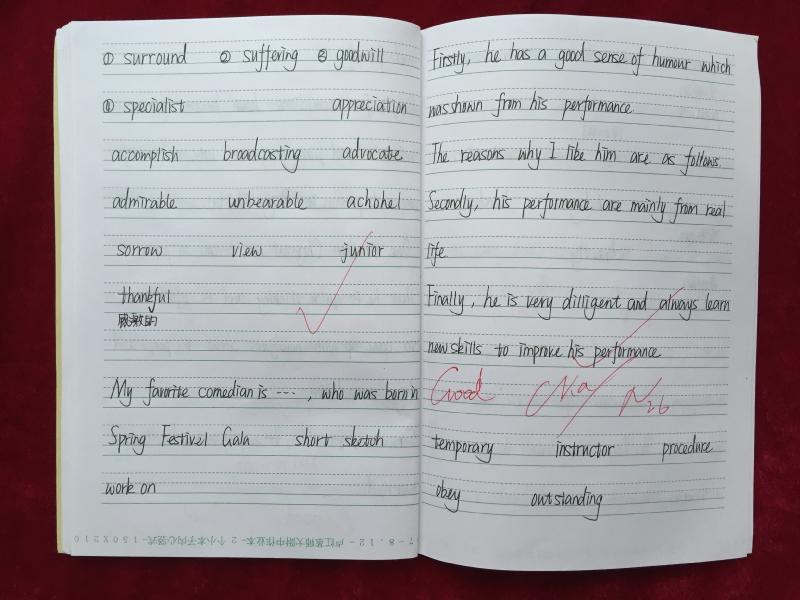 ① surround ② suffering ③ goodwill
④ specialist appreciation
accomplish broadcasting advocate
admirable unbearable achohel
sorrow view junior
thankful
感激的
My favorite comedian is ---, who was born in
Spring Festivel Gala short sketch
work on
Firstly, he has a good sense of humour which
was shown from his performance
The reasons why I like him are as follows.
Secondly, his performance are mainly from real
life.
Finally, he is very dilligent and always learn
new skills to improve his performance
Good
temporary instructor procedure
obey outstanding